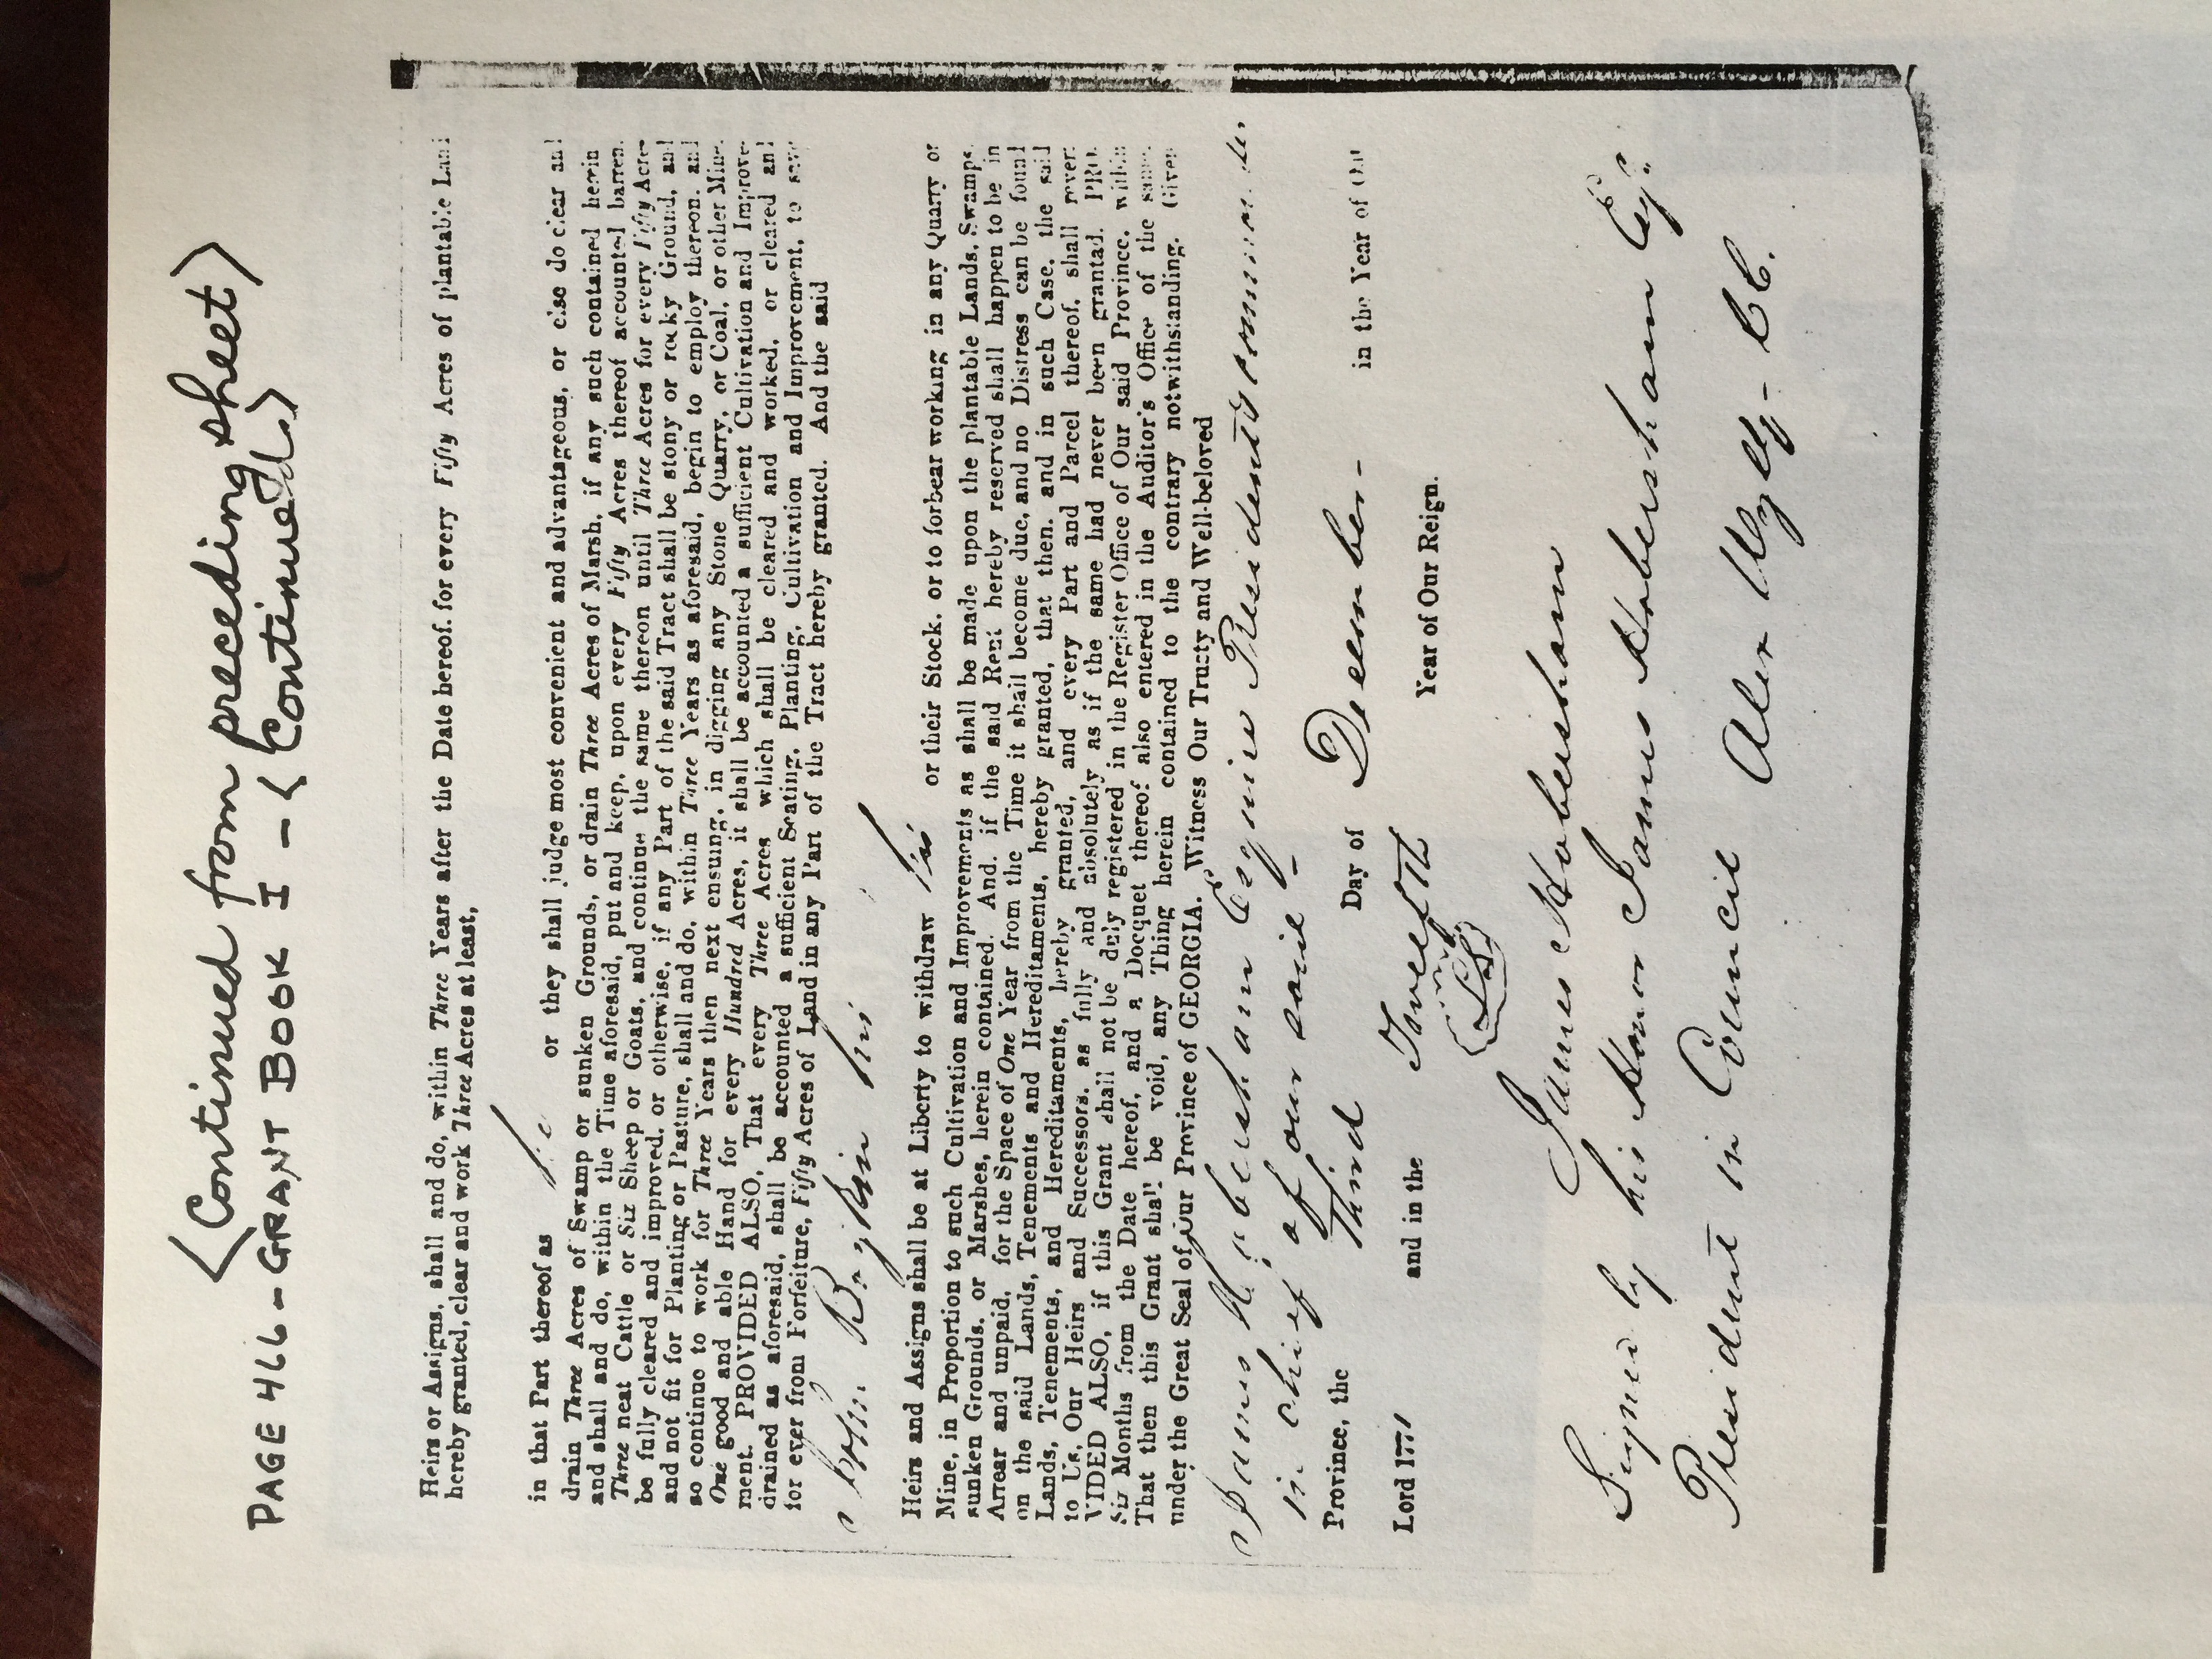 (Continued from preceding sheet)
PAGE 466 - GRANT BOOK I - (Continued)
Heirs or Assigns, shall and do, within Three Years after the Date hereof, for every Fifty Acres of plantable Land
hereby granted, clear and work Three Acres at least,
in that Part thereof as he or they shall judge most convenient and advantageous, or else do clear and
drain Three Acres of Swamp or sunken Grounds, or drain Three Acres of Marsh, if any such contained herein
and shall and do, within the Time aforesaid, put and keep, upon every Fifty Acres thereof accounted barren,
Three neat Cattle or Six Sheep or Goats, and continue the same thereon until Three Acres for every Fifty Acres
be fully cleared and improved, or otherwise, if any Part of the said Tract shall be stony or rocky Ground, and
and not fit for Planting or Pasture, shall and do, within Three Years as aforesaid, begin to employ thereon, and
so continue to work for Three Years then next ensuing, in digging any Stone Quarry, or Coal, or other Mine,
One good and able Hand for every Hundred Acres, it shall be accounted a sufficient Cultivation and Improve-
ment. PROVIDED ALSO, That every Three Acres which shall be cleared and worked, or cleared and
drained as aforesaid, shall be accounted a sufficient Seating, Planting, Cultivation and Improvement, to save
for ever from Forfeiture, Fifty Acres of Land in any Part of the Tract hereby granted. And the said
John Boykin his
Heirs and Assigns shall be at Liberty to withdraw his or their Stock, or to forbear working in any Quarry or
Mine, in Proportion to such Cultivation and Improvements as shall be made upon the plantable Lands, Swamps,
sunken Grounds, or Marshes, herein contained. And, if the said Rent hereby reserved shall happen to be in
Arrear and unpaid, for the Space of One Year from the Time it shall become due, and no Distress can be found
on the said Lands, Tenements and Hereditaments, hereby granted, that then, and in such Case, the said
Lands, Tenements, and Hereditaments, hereby granted, and every Part and Parcel thereof, shall revert
to Us, Our Heirs and Successors, as fully and absolutely as if the same had never been granted. PRO-
VIDED ALSO, if this Grant shall not be duly registered in the Register Office of Our said Province, within
Six Months from the Date hereof, and a Docquet thereof also entered in the Auditor's Office of the same,
That then this Grant shall be void, any Thing herein contained to the contrary notwithstanding. Given
under the Great Seal of Our Province of GEORGIA. Witness Our Trusty and Well-beloved
James Habersham Esquire President & Commander
in chief of our said
Province, the Third Day of December - in the Year of Our
Lord 177 and in the Twelfth Year of Our Reign.
LS
James Habersham
Signed by his Honor James Habersham Esqr.
President in Council Alex Wylly - CC.